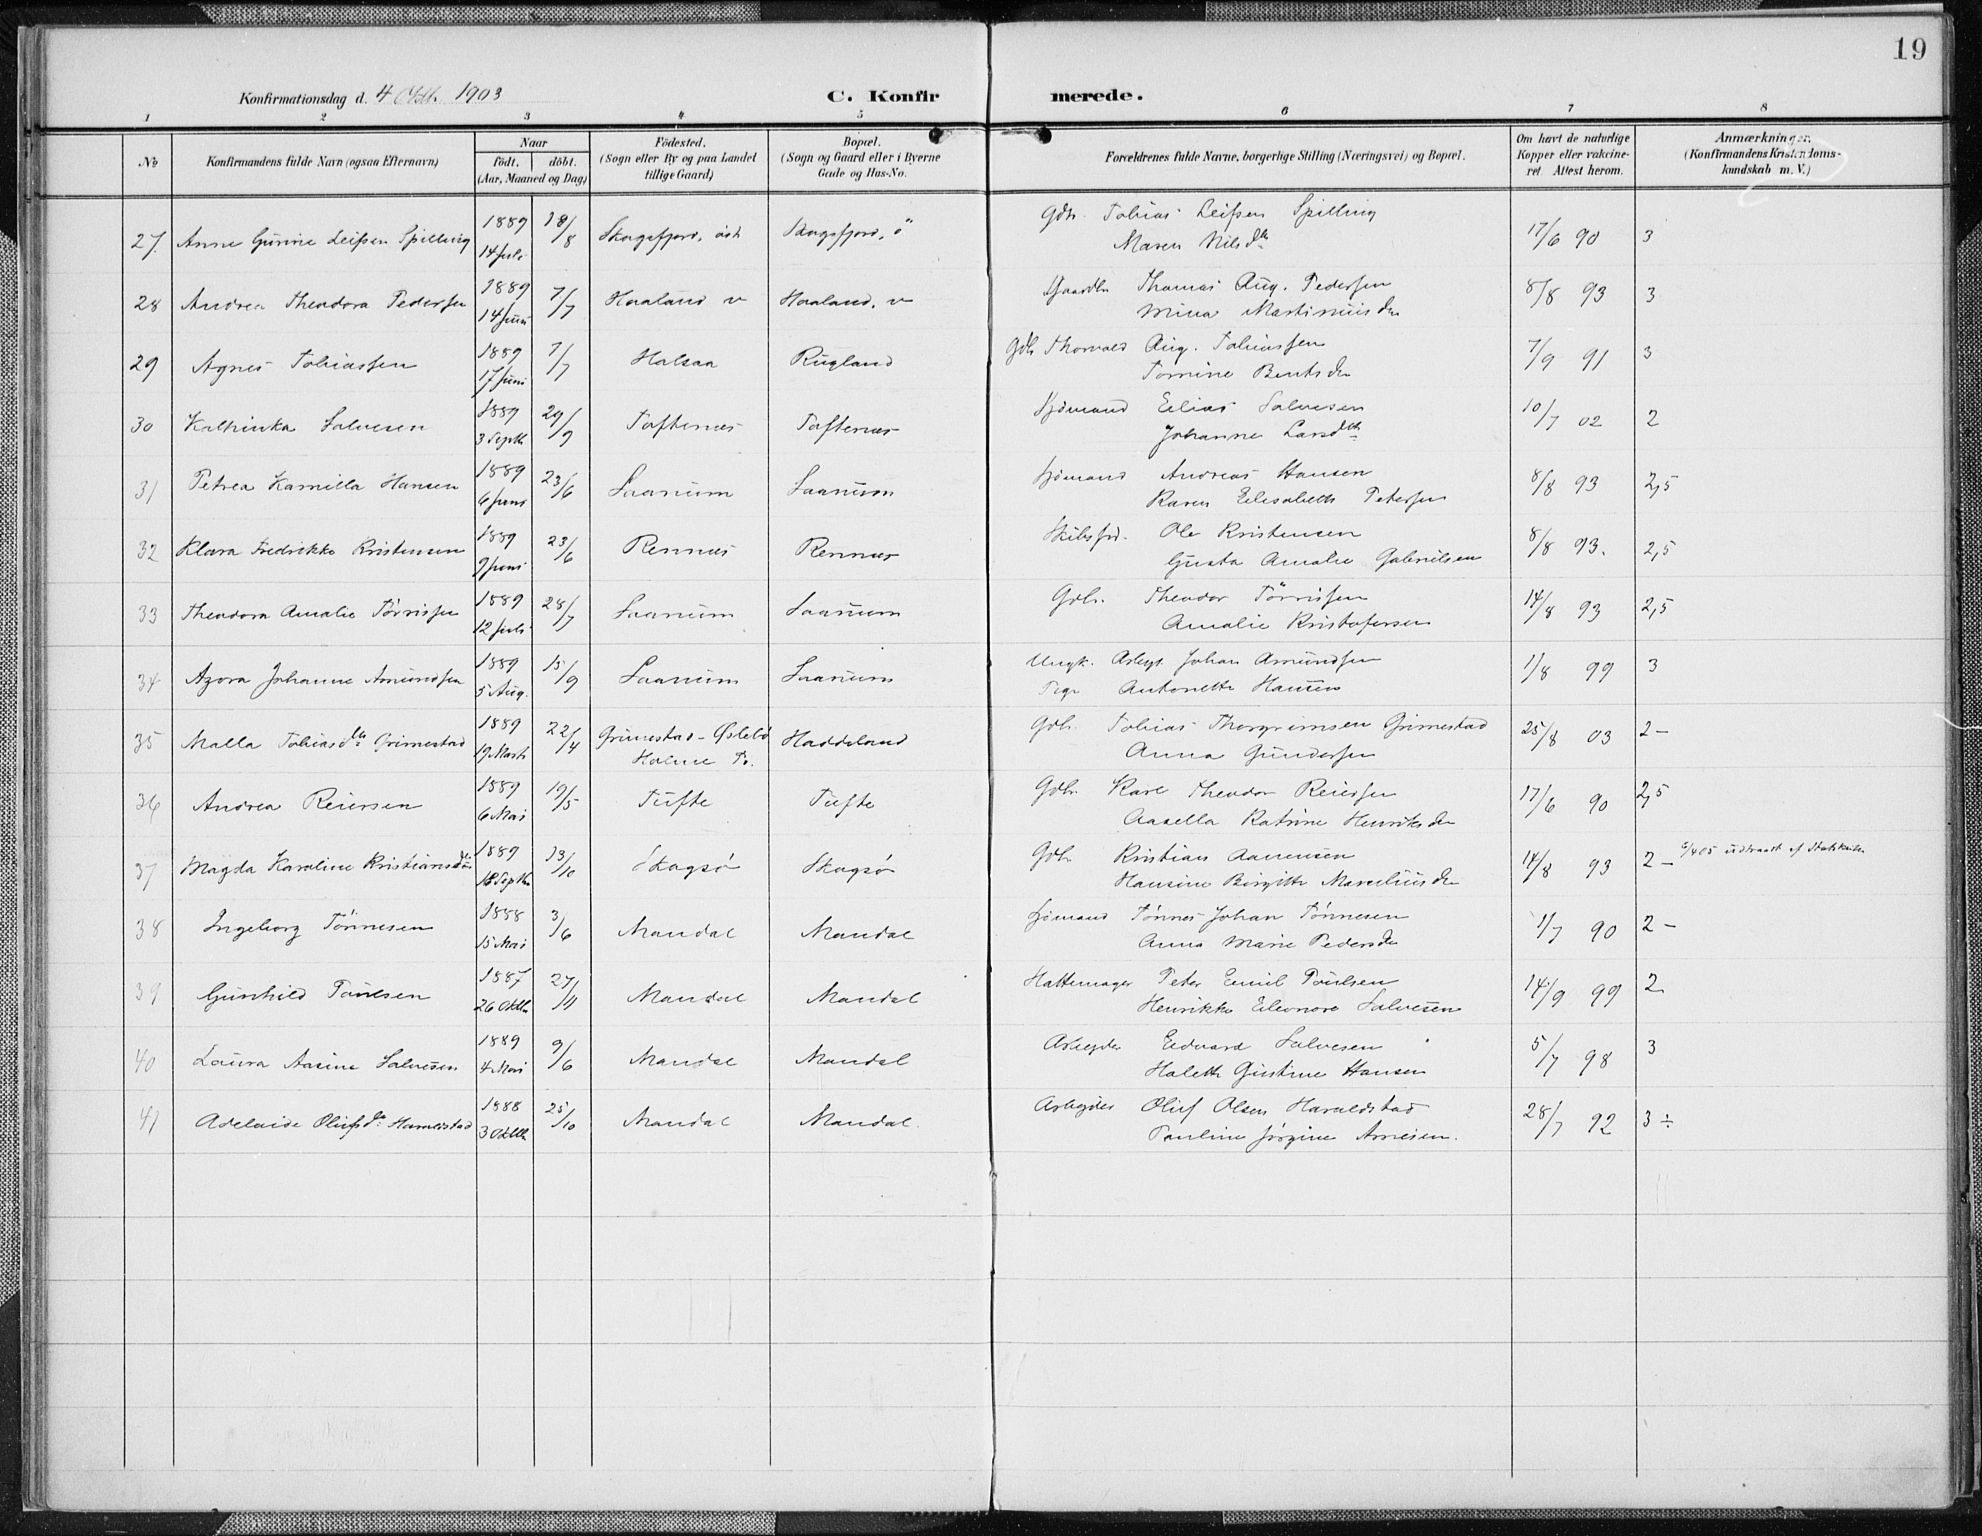 19
Konfirmationsdag d. 4 Oktb. 1903
C. Konfirmerede.
1 2 3 4 5 6 7 8
No
Konfirmandens fulde Navn (ogsaa Efternavn)
Naar
födt. döbt.
(Aar, Maaned og Dag)
Födested.
(Sogn eller By og paa Landet
tillige Gaard)
Bopæl.
(Sogn og Gaard eller i Byerne
Gade og Hus-No.
Forældrenes fulde Navne, borgerlige Stilling (Næringsvei) og Bopæl.
Om havt de naturlige
Kopper eller vakcine-
ret Attest herom.
Anmærkninger.
(Konfirmandens Kristendoms-
kundskab m. V.)
27. Anne Gurine Leifsen Spilling 1889 14 juli 18/8 Skogsfjord, öst Skogsfjord, ö Gdb. Tobias Leifsen Spilling 17/6 90 3
Maren Nilsdtr
28 Andrea Theodora Pedersen 1889 14 Juni 7/7 Haaland v Haaland, v Gaardbr Thomas Aug. Pedersen 8/8 93 3
Mina Martiniusdtr
29 Agnes Tobiassen 1889 17 Juni 7/7 Halsaa Rugland Gdb Thorvald Aug. Tobiassen 7/9 91 3
Tomine Bentsdtr
30 Kathinka Salvesen 1889 3 Septb 29/9 Toftenæs Toftenæs Sjömand Elias Salvesen 10/7 02 2
Johanne Larsdtr
31 Petrea Kamilla Hansen 1889 6 juni 23/6 Saanum Saanum Sjömand Andreas Hansen 8/8 93 2,5
Karen Elisabeth Petersen
32 Klara Fredrikke Kristensen 1889 9 juni 23/6 Rennæs Rennæs Skibsfrd. Ole Kristensen 8/8 93. 2,5
Gusta Amalie Gabrielsen
33 Theodora Amalie Törrisen 1889 12 juli 28/7 Saanum Saanum Gdb. Theodor Törrisen 14/8 93 2,5
Amalie Kristofersen
34 Azora Johanne Amundsen 1889 5 Aug. 15/9 Saanum Saanum Ungk. Arbeyd. Johan Amundsen 1/8 99 3
Pige Antonette Hansen
35 Malla Tobiasdtr Grimestad 1889 19 Marts 22/4 Grimestad - Øslebö Haddeland Gdb. Tobias Thorgrimsen Grimestad 25/8 03 2-
Holme Pr. Anna Gundersen
36 Andrea Reiersen 1889 6 Mai 19/5 Tufte Tufte Gdb. Karl Theodor Reiersen 17/6 90 2,5
Aasella Katrine Henriksdtr
37 Magda Karoline Kristiansdtr 1889 18 Septb 13/10 Skogsø Skogsø Gdb. Kristian Aanensen 14/8 93 2- 6/4 05 udtraadt af Statskirken
Hansine Birgitte Marceliusdtr
38 Ingeborg Tönnesen 1888 15 Mai 3/6 Mandal Mandal Sjömand Tönnes Johan Tönnesen 1/7 90 2-
Anna Marie Pedersdtr
39 Gunhild Poulsen 1887 26 Oktb 27/11 Mandal Mandal Hattemager Peter Emil Poulsen 14/9 99 2
Henrikke Eleonore Salvesen
40 Laura Aasine Salvesen 1889 4 Mai 9/6 Mandal Mandal Arbeyder Edvard Salvesen 5/7 98 3
Halette Gustine Hansen
41 Adelaide Olufsdtr Haraldstad 1888 3 Oktb 25/10 Mandal Mandal. Arbeyder Oluf Olsen Haraldstad 28/7 92 3÷
Pauline Jørgine Arnesen.